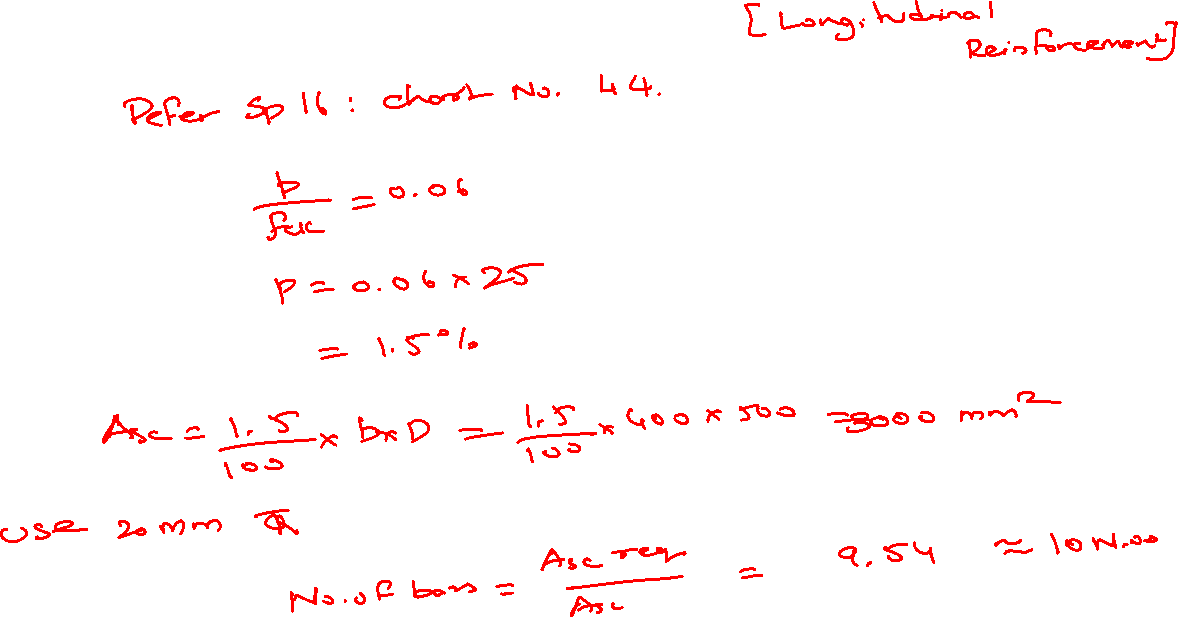 [Longitudinal
Reinforcement]
Refer SP 16 : chart No. 44.
p/fck = 0.06
P = 0.06 × 25
= 1.5%
Asc = 1.5/100 × b×D = 1.5/100 × 400 × 500 = 3000 mm²
use 20 mm Φ
No. of bars = Asc req/Asc = 9.54 ≈ 10 N.os